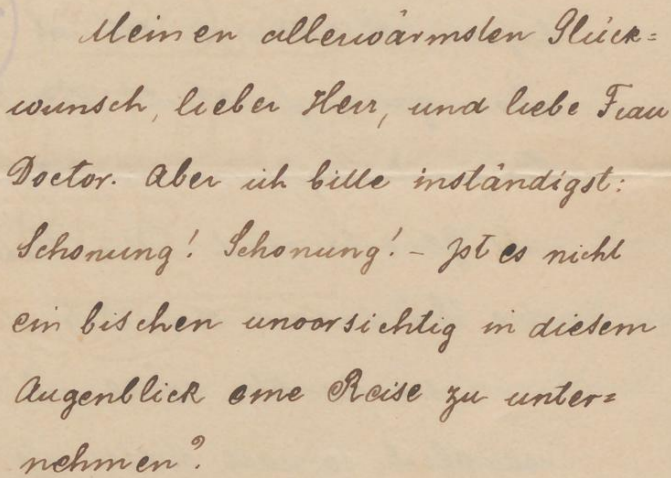 Meinen allerwärmsten Glück=
wunsch, lieber Herr, und liebe Frau
Doctor. Aber ich bitte inständigst:
Schonung! Schonung! – Ist es nicht
ein bischen unvorsichtig in diesem
Augenblick eine Reise zu unter=
nehmen?